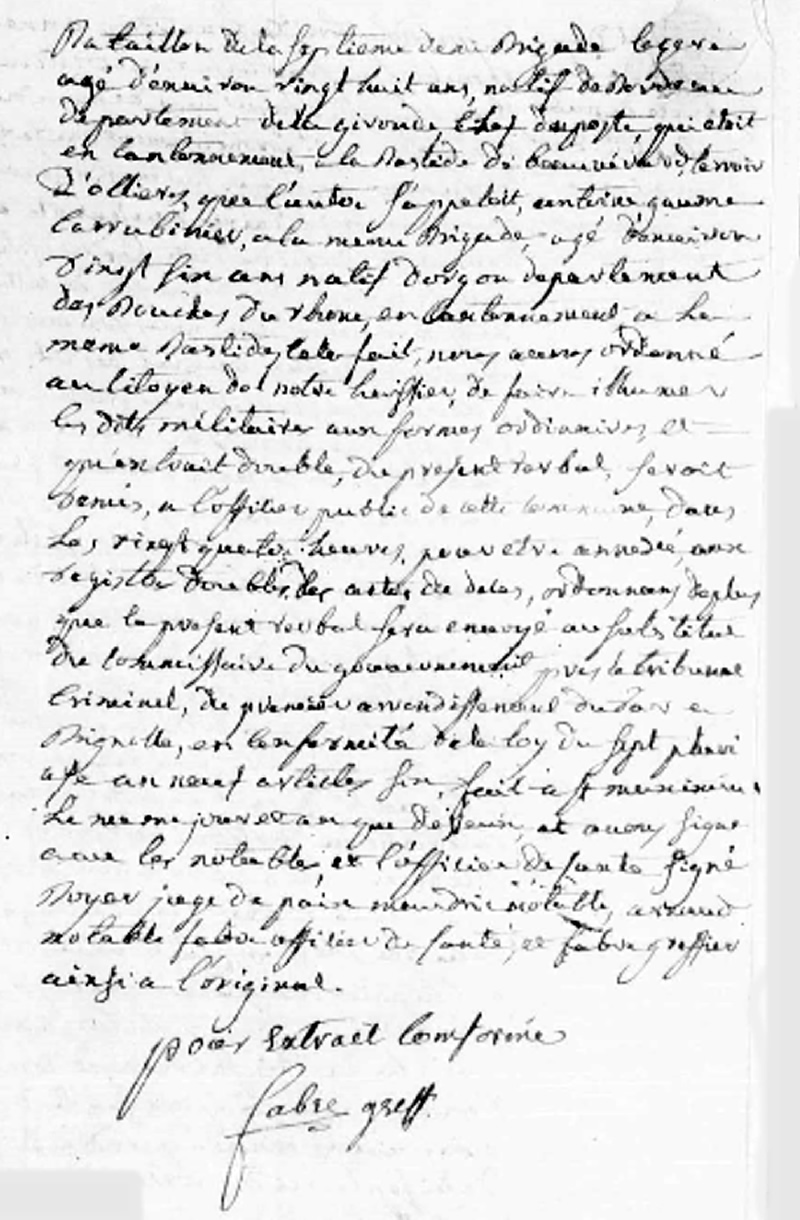 Bataillon de la septieme demi Brigade legere
agé d'environ vingt huit ans, natif de Bordeaux
departement de la gironde, Chef du poste, qui etoit
en Cantonnement, a la Bastide de beauvévard, terroir
D'ollieres, que l'autre s'appeloit, antoine gaume
Carrabinier, a la meme Brigade, agé d'environ
Vingt sin ans natif d'orgon departement
des Bouches du rhone, en Cantonnement a la
meme Bastide, Cela fait, nous avons ordonné
au Citoyen de notre huissier, de faire ithumer
les dits militaires aux formes ordinaires, et
qu'extrait double, du present verbal, seroit
remis, a l'officier public de cette commune, dans
Les vingt quatre heures, pour etre annexé, aux
registre doubles, des actes de deces, ordonnons de plus
que le present verbal sera envoyé au substitut
du Commissaire du gouvernement pres le tribunal
Criminel, du premier arrondissement du var a
Brignolle, en Conformité de la loy du sept pluvi
ose an neuf articles sin, fait a st maximin
Le meme jour et an que dessus, et avons signé
avec les notable, et l'officier de santé Signé
Boyer juge de paix notable, arnaud
notable fabre officier de santé, et fabre greffier
ainsi a l'original.
pour Extrait Conforme
fabre greff.